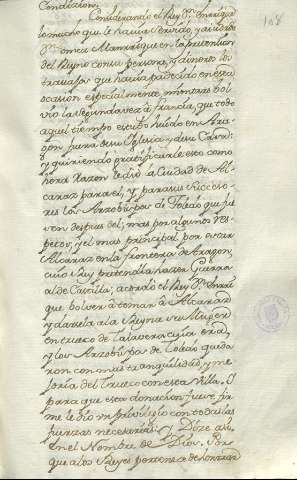 Condicion.
Considerando el Rey Dn. Enrrique
lo mucho que le havia servido, y ayudado
Dn. Gomez Manrrique en la pretencion
del Reyno con su persona, y dinero los
travajos que havia padecido en esta
ocasion especialmente mientras bol-
vio la segunda vez à francia, que todo
aquel tiempo estubo huido en Ara-
gon, fuera de su Iglesia y de su Casa:
y quiriendo gratificarle esto como
hera razon le dió la Ciudad de Al-
caraz para el, y para sus succeso-
res los Arzobispos de Toledo que fue-
sen despues del, mas por algunos res-
petos, y el mas principal por estar
Alcaraz en la frontera de Aragon,
cuio Rey pretendia hazer Guerra
al de Castilla; acordó el Rey Dn. Enrri-
que bolver à tomar à Alcaraz
y darsela à la Reyna su Muger
en trueco de Talavera cuia era,
y los Arzobispos de Toledo queda-
ron con mas tranquilidad, y me-
joria del trueco con esta Villa. Y
para que esta donacion fuese fir-
me le dió su privilegio con todas las
fuerzas necesarias: y Dize asi.
En el Nombre de Dios. Por-
que à los Reyes pertenece de honrrar
108